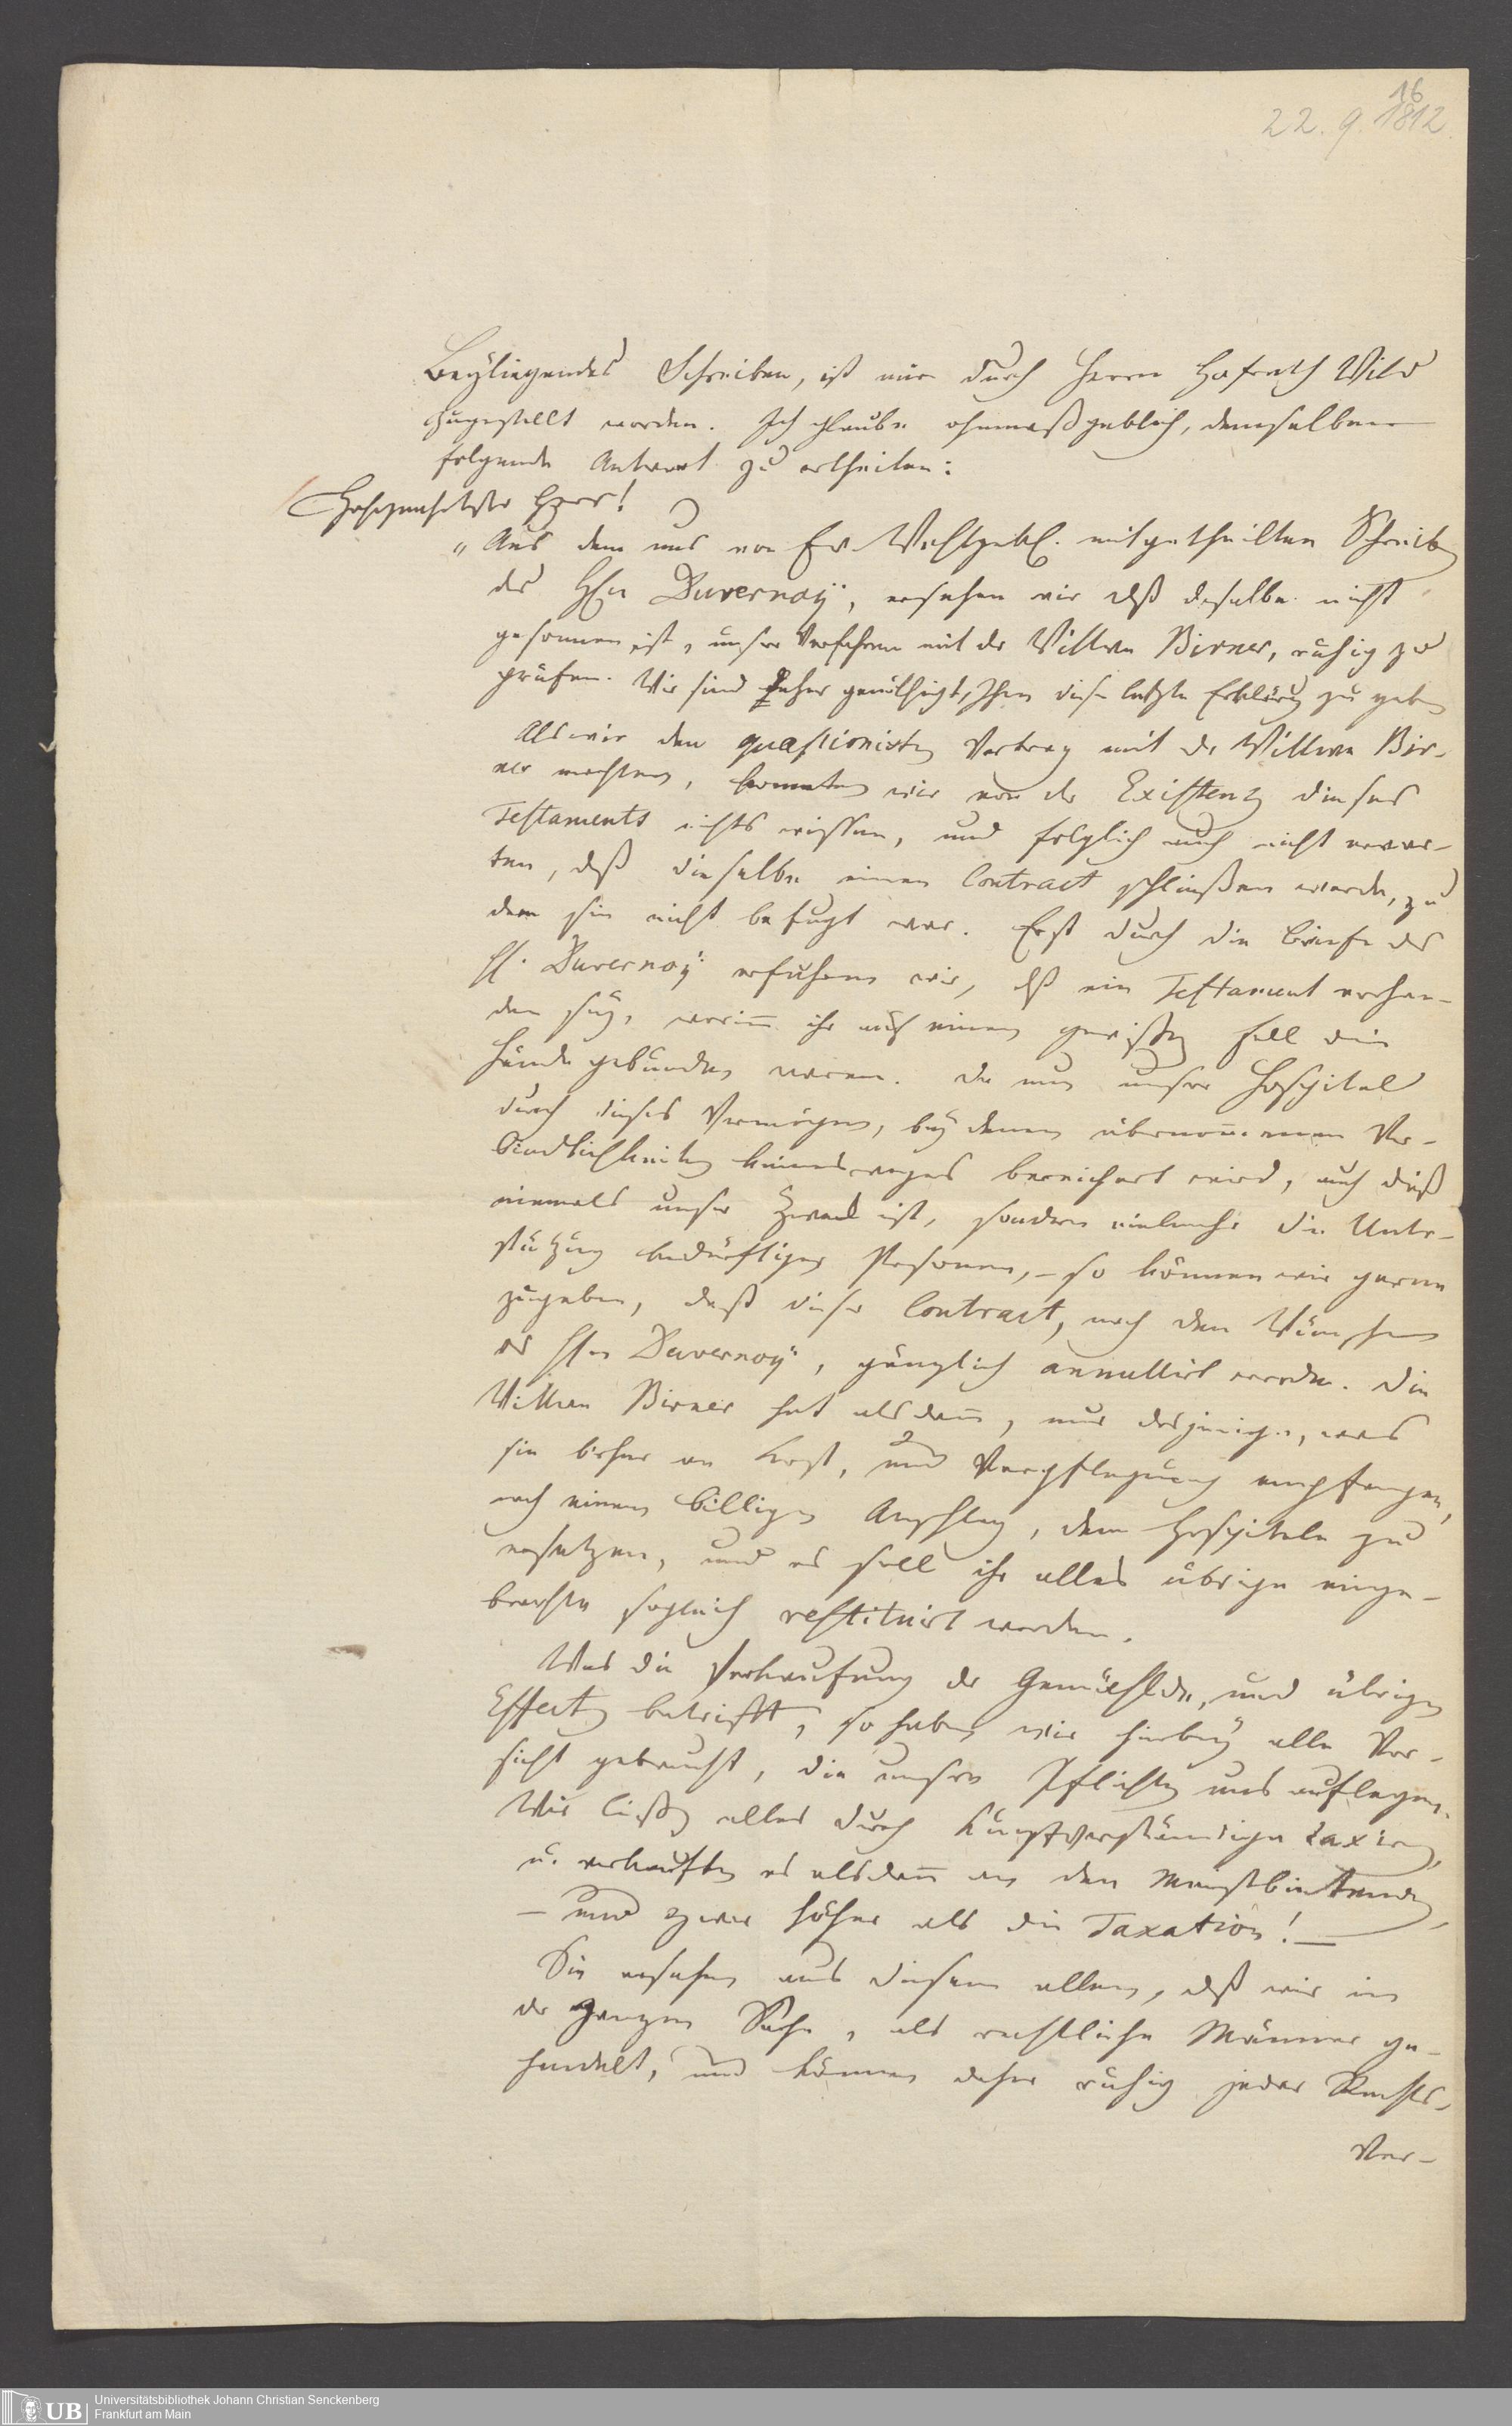 16
22. 9. 1812
Beyliegendes Schreiben, ist mir durch Herrn Hofrath Wild
zugestellt worden. Ich glaube ohnmaßgeblich, demselben
folgende Antwort zu ertheilen:
Hochgeehrtester Herr!
„Aus dem uns von Ew. Wohlgeb. mitgetheilten Schreiben
des Hrn Duvernoÿ, ersehen wir daß derselbe nicht
gesonnen ist, unser Verfahren mit der Wittwe Birner, ruhig zu
prüfen. Wir sind daher genöthigt, Ihnen diese letzte Erklärung zu geben
Als wir den quaestionirten Vertrag mit der Wittwe Bir-
ner machten, konnten wir von der Existenz dieses
Testaments nichts wissen, und folglich auch nicht erwar-
ten, daß dieselbe einen Contract schließen werde, zu
dem sie nicht befugt war. Erst durch die Briefe des
H. Duvernoÿ erfuhren wir, daß ein Testament vorhan-
den sey, worin̅ ihr auf einen gewißen Fall die
Hände gebunden waren. Da nun unser Hospital
durch dieses Vermögen, bey denen übernom̅enen Ver-
bindlichkeiten keineswegs bereichert wird, auch dieß
niemals unser Zweck ist, sondern vielmehr die Unter-
stützung bedürftiger Personen, – so können wir gerne
zugeben, daß dieser Contract, nach den Wünschen
des Hrn Duvernoÿ, gänzlich annullirt werde. Die
Wittwe Birner hat alsdan̅, nur dasjenige, was
sie bisher an Kost, und Verpflegung empfangen,
nach einem billigen Anschlag, dem Hospitale zu
ersetzen, und es soll ihr alles übrige einge-
brachte sogleich restituirt werden.
Was die Verkaufung der Gemählde, und übrigen
Effecten betrifft, so haben wir hierbey alle Vor-
sicht gebraucht, die unsere Pflichten uns auflegen.
Wir ließen alles durch Kunstverständige taxiren,
u. verkauften es alsdan̅ an den Meistbietenden,
– und zwar höher als die Taxation! –
Sie ersehen aus diesem allem, daß wir in
der ganzen Sache, als rechtliche Männer ge-
handelt, und können daher ruhig jeder Rechts-
Ver-
UB
Universitätsbibliothek Johann Christian Senckenberg
Frankfurt am Main